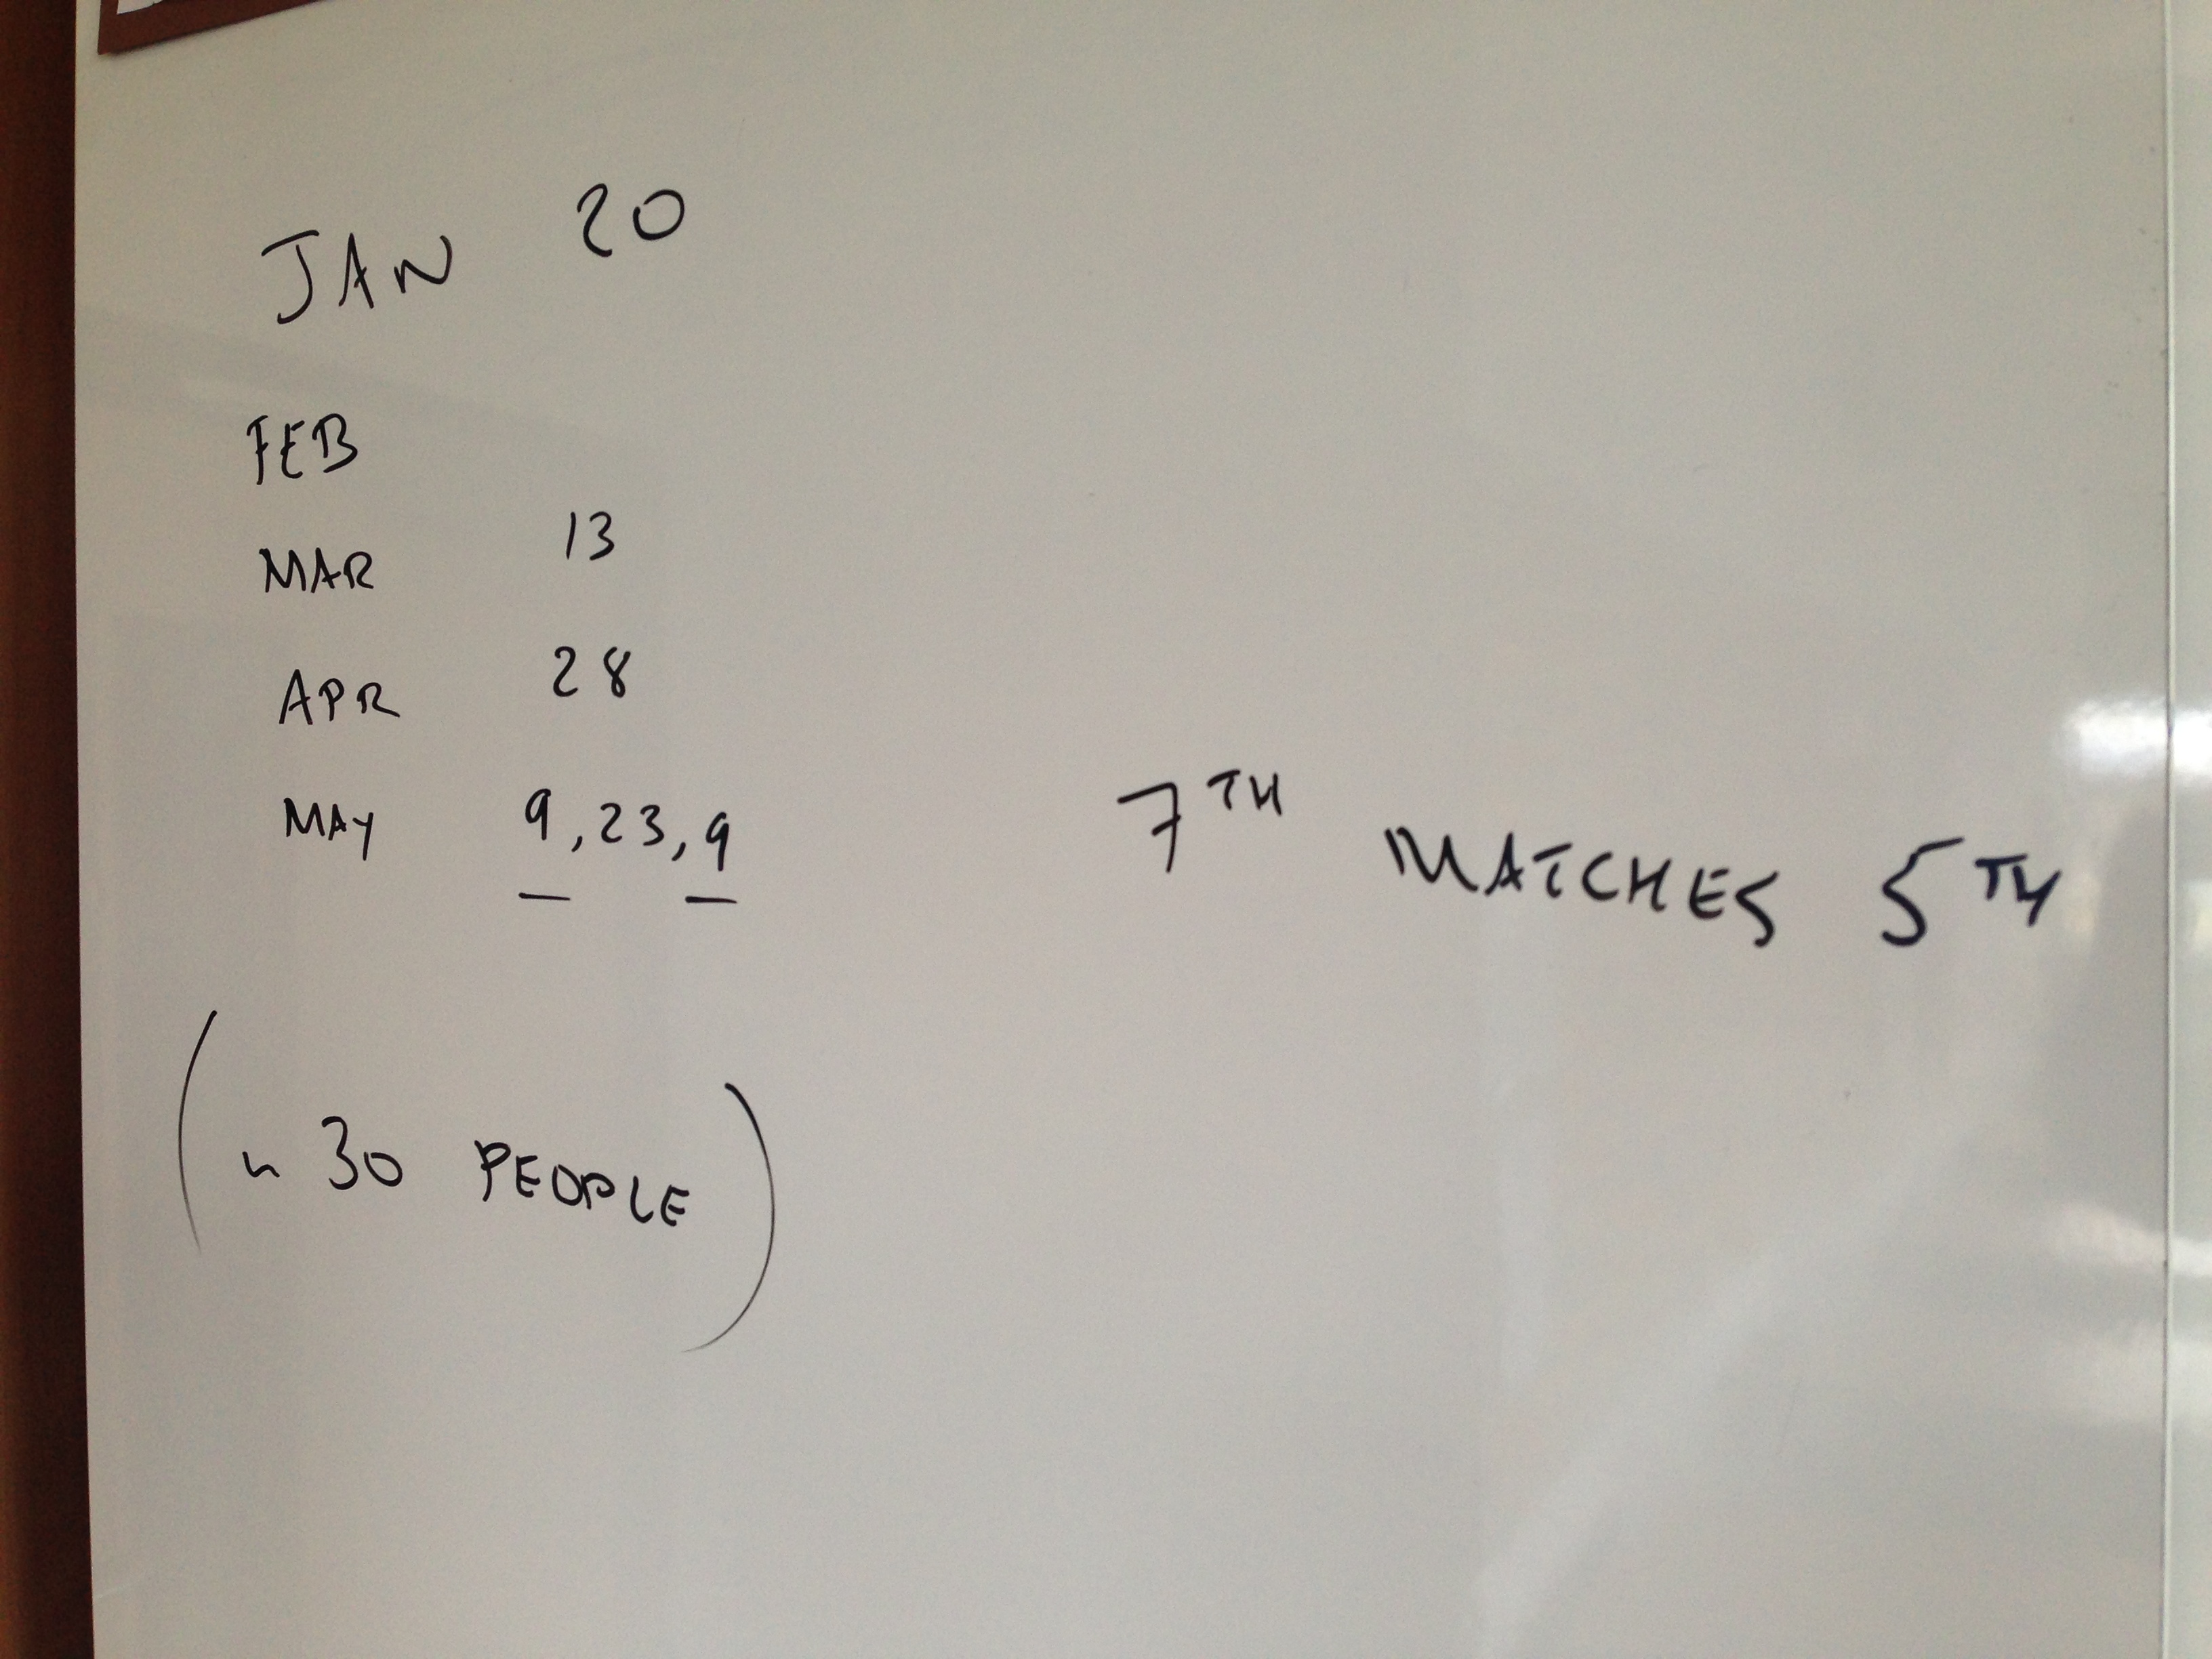 JAN 20
FEB
MAR 13
APR 28
MAY 9, 23, 9
7TH MATCHES 5TH
(~ 30 PEOPLE)